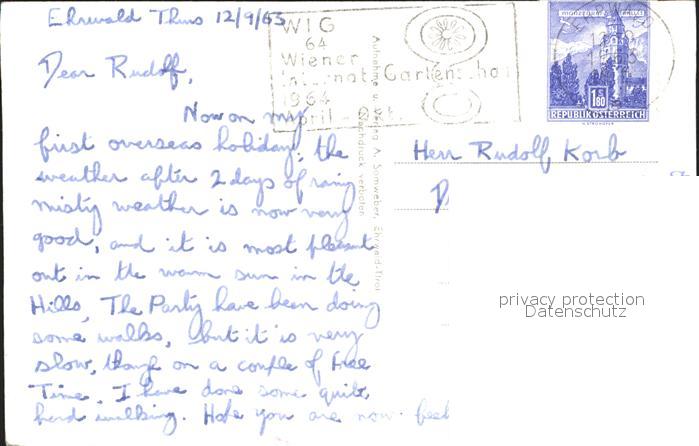 Ehrwald Thurs 12/9/63
WIG
64
Wiener
Internat. Gartenschau
1964
April - Okt.
REPUBLIK ÖSTERREICH
1.80
Dear Rudolf,
Now on my
first overseas holiday, the
weather after 2 days of rainy
misty weather is now very
good, and it is most pleasant
out in the warm sun in the
Hills, The Party have been doing
some walks, but it is very
slow, though on a couple of free
Time, I have done some quite
hard walking. Hope you are now feel
Aufnahme u. Verlag A. Somweber, Ehrwald-Tirol
Nachdruck verboten
Herr Rudolf Korb
D
privacy protection
Datenschutz